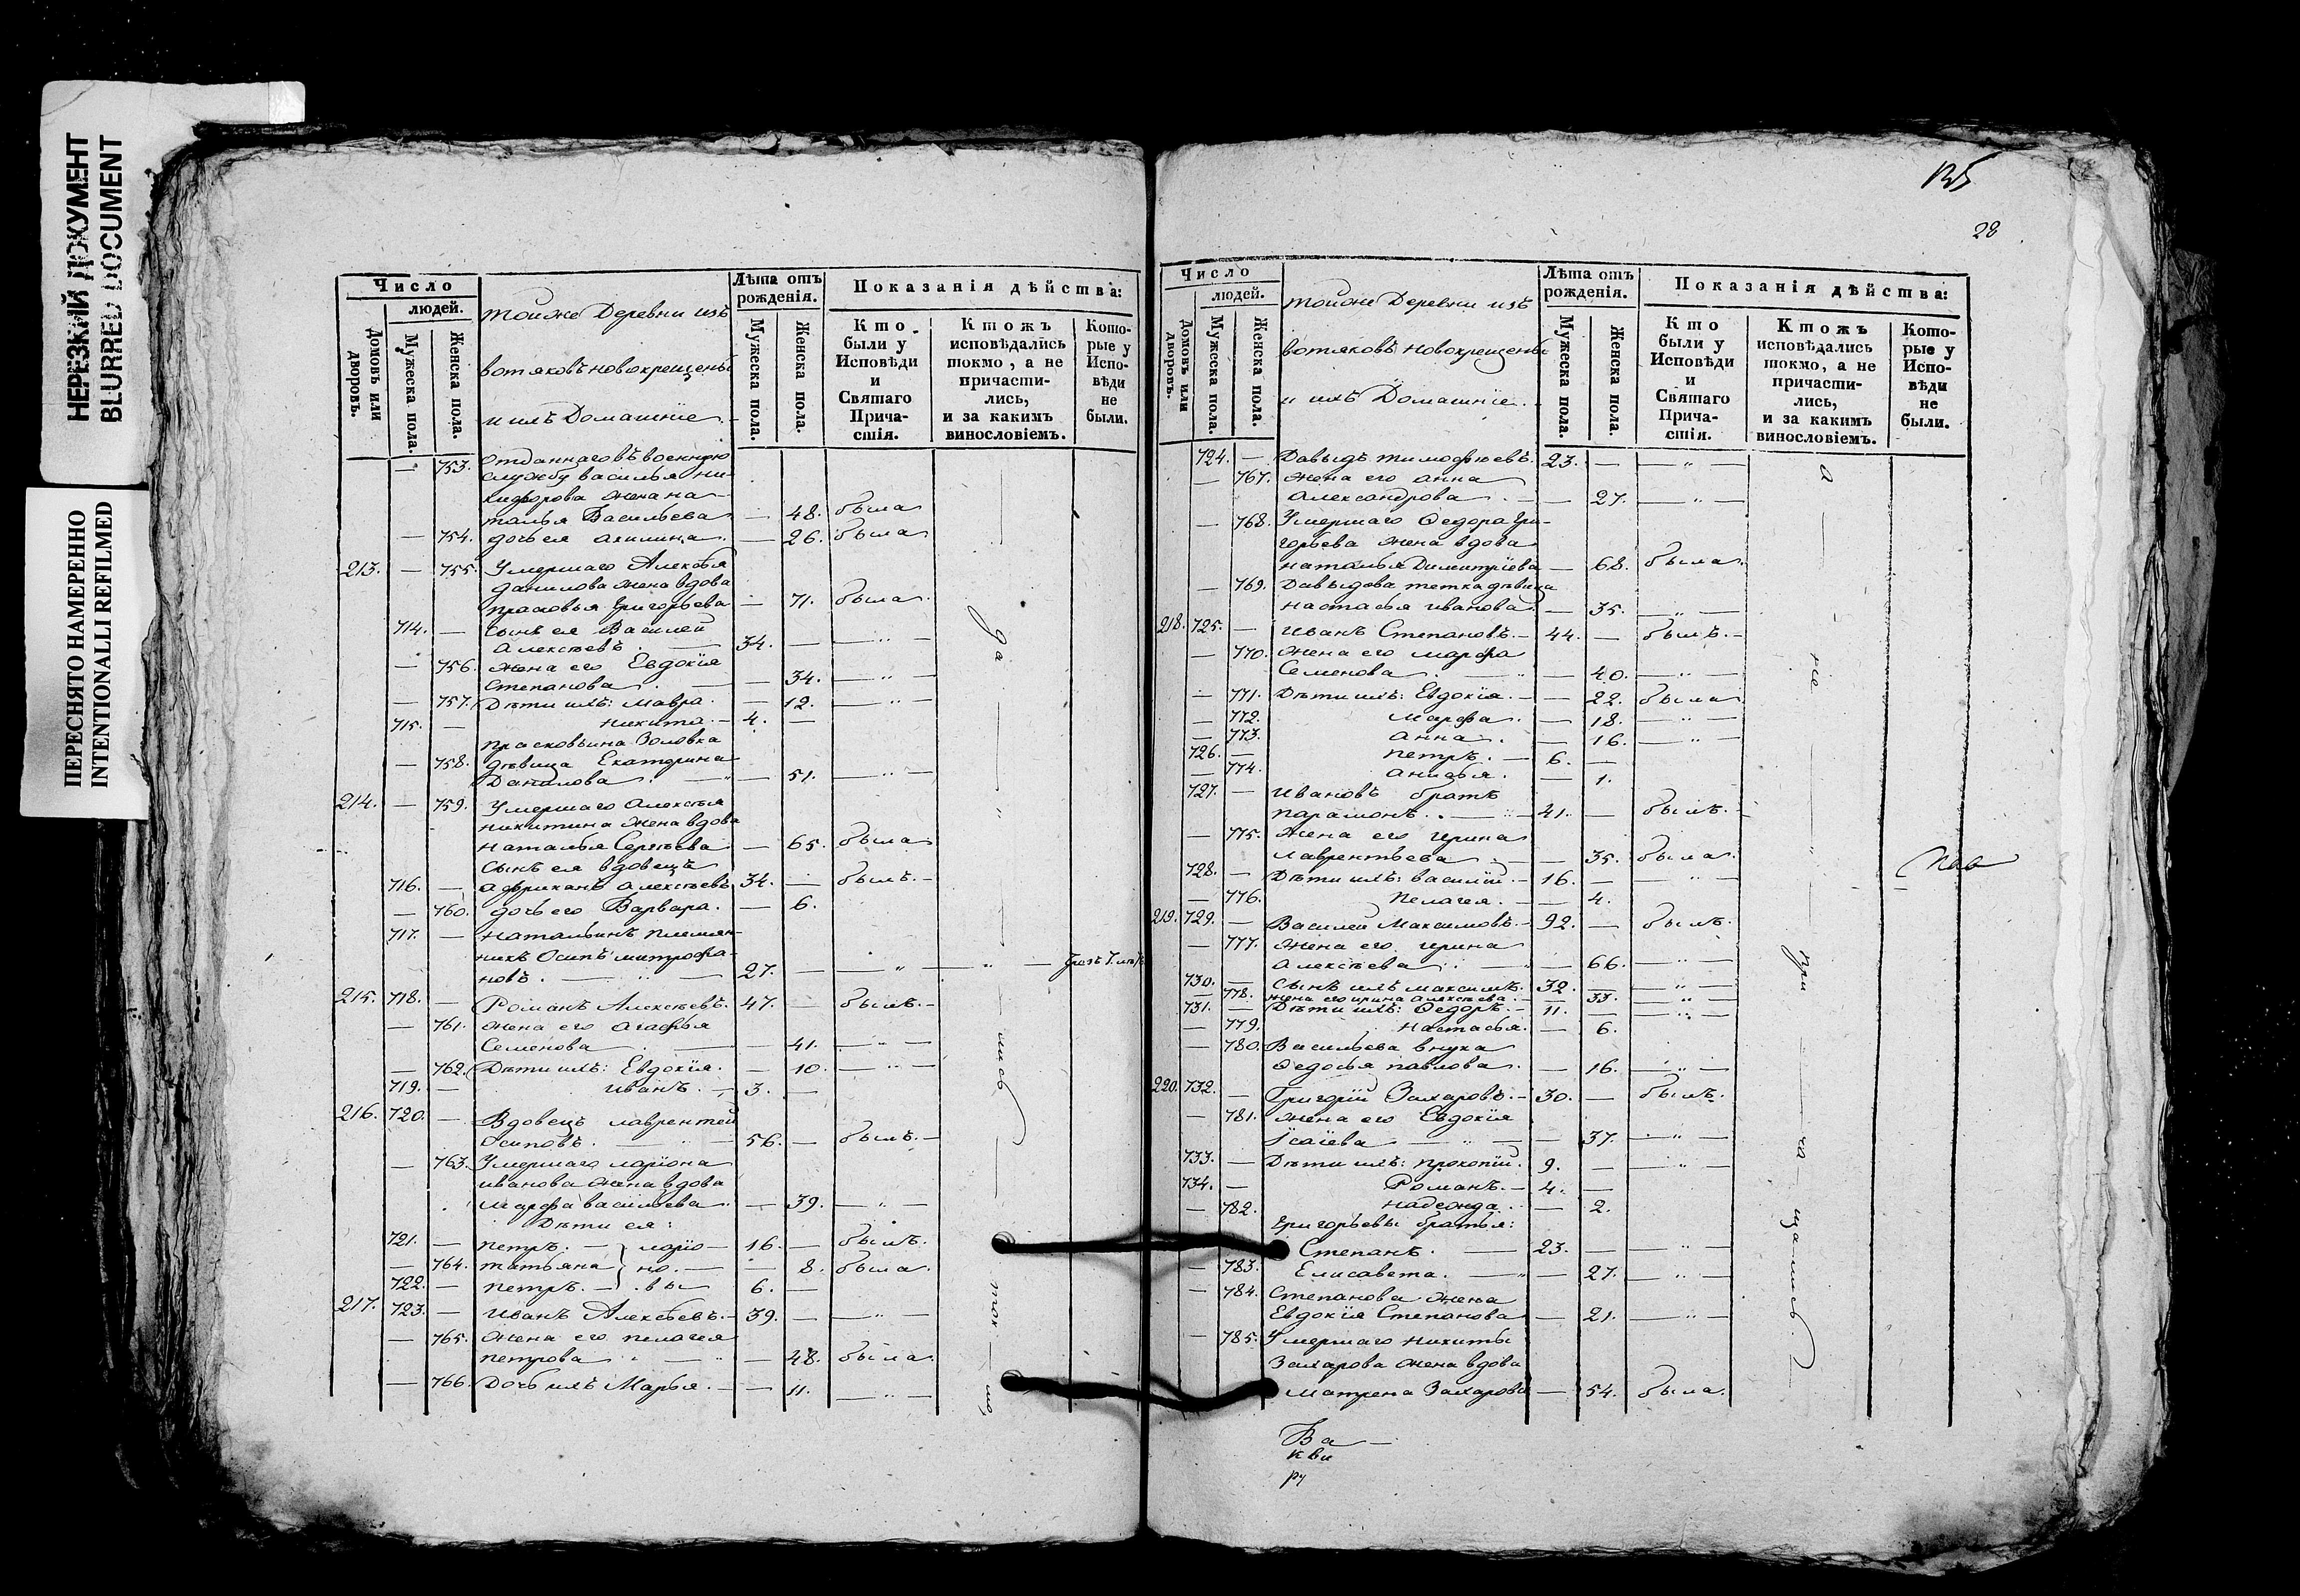 НЕРЕЗКИЙ ДОКУМЕНТ
BLURRED DOCUMENT
ПЕРЕСНЯТО НАМЕРЕННО
INTENTIONALLI REFILMED
Число
людей.
Домовъ или дворовъ.
Мужеска пола.
Женска пола.
тойже Деревни изъ
вотяковъ новокрещены
и ихъ Домашніе.
Лѣта отъ рожденія.
Мужеска пола.
Женска пола.
Показанія дѣйства:
Кто были у Исповѣди и Святаго Причастія.
Ктожъ исповѣдались токмо, а не причастились, и за какимъ винословіемъ.
Которые у Исповѣди не были.
— 753. Отданнаго въ военную
службу василья ни-
кифорова жена на-
талья Васильева — 48. была
— 754. дочь ея акилина. — 26. была
213. — 755. Умершаго Алексѣя
данилова жена вдова
прасковья Григорьева — 71. была.
714. — Сынъ ея Василей
Алексѣевъ. — 34. — — „ —
— 756. жена его Евдокія
Степанова. — — 34. — „ —
— 757. Дѣти ихъ: Мавра. — 12. — „ —
715. — никита. — 4. —
прасковьина Золовка
— 758. дѣвица Екатерина
Данилова. — „ — 51. — „ —
214. — 759. Умершаго Алексѣя
никитина жена вдова
наталья Сергѣева — 65. была
Сынъ ея вдовецъ
716. — Адріканъ Алексѣевъ 34. — былъ. —
— 760. дочь его Варвара. — 6.
717. — натальинъ племян-
никъ Осипъ митрофа-
новъ. — „ — 27. — — „ — „ —
215. 718. — Романъ Алексѣевъ. 47. — былъ. —
— 761. жена его Агафья
Семенова. — — 41. — „ —
— 762. Дѣти ихъ: Евдокія. — 10. — „ —
719. — иванъ. — 3. —
216. 720. — Вдовецъ лаврентей
Осиповъ. — „ — 56. — былъ. —
— 763. Умершаго ларіона
иванова жена вдова
марфа васильева. — 39. — „ —
Дѣти ея:
721. — петръ. — } ларіо — 16. — былъ.
— 764. татьяна } но. — — 8. была.
722. — петръ. — } вы — 6. —
217. 723. — иванъ Алексѣевъ. — 39. — — „ —
— 765. жена его пелагея
петрова „ — „ — 48. была.
— 766. Дочь ихъ Марья. — — 11. — „ —
да
„
ми
ток
мо
135
28
Число
людей.
Домовъ или дворовъ.
Мужеска пола.
Женска пола.
тойже Деревни изъ
вотяковъ новокрещены
и ихъ Домашніе.
Лѣта отъ рожденія.
Мужеска пола.
Женска пола.
Показанія дѣйства:
Кто были у Исповѣди и Святаго Причастія.
Ктожъ исповѣдались токмо, а не причастились, и за какимъ винословіемъ.
Которые у Исповѣди не были.
724. — Давыдъ тимофѣевъ. 23. — — „ —
— 767. жена его анна
александрова. — — 27. — „ —
— 768. Умершаго Ѳедора гри-
горьева жена вдова
наталья Димитріева — 68. была.
— 769. Давыдова тетка дѣвица
настасья иванова. — 35. — „ —
218. 725. — иванъ Степановъ. — 44. — былъ. —
— 770. жена его марфа
Семенова. — „ — 40. — „ —
— 771. Дѣти ихъ: Евдокія. — — 22. была
— 772. Марфа. — 18. — „ —
— 773. анна. — 16. — „ —
726. — петръ. — 6. —
— 774. анисья. — 1.
727. — ивановъ братъ
парамонъ. — „ — 41. — былъ. —
— 775. жена его ирина
лаврентьева. — — 35. была.
728. — Дѣти ихъ: василій. — 16. — — „ —
— 776. пелагея. — — 4.
219. 729. — Василей Максимовъ. — 92. — былъ.
— 777. жена его ирина
Алексѣева. — — 66. — „ —
730. — Сынъ ихъ максимъ. 32. — — „ —
— 778. жена его ирина алексѣева. — — 33. — „ —
731. — Дѣти ихъ: Ѳедоръ. — 11. — — „ —
— 779. настасья. — 6.
— 780. Васильева внука
Ѳедосья павлова. — 16. — „ —
220. 732. — Григорій Захаровъ. — 30. — былъ.
— 781. жена его Евдокія
Ісаіева — „ — — 37. — „ —
733. — Дѣти ихъ: прокопій. 9. — — „ —
734. — Романъ. — 4. —
— 782. надежда. — 2.
Григорьевы братья:
Степанъ. — 23. — — „ —
— 783. Елисавета. — „ — 27. — „ —
— 784. Степанова жена
Евдокія Степанова — 21. — „ —
— 785. Умершаго никиты
Захарова жена вдова
Матрена Захарова — 54. была.
а
не
„
при
ча
Ва —